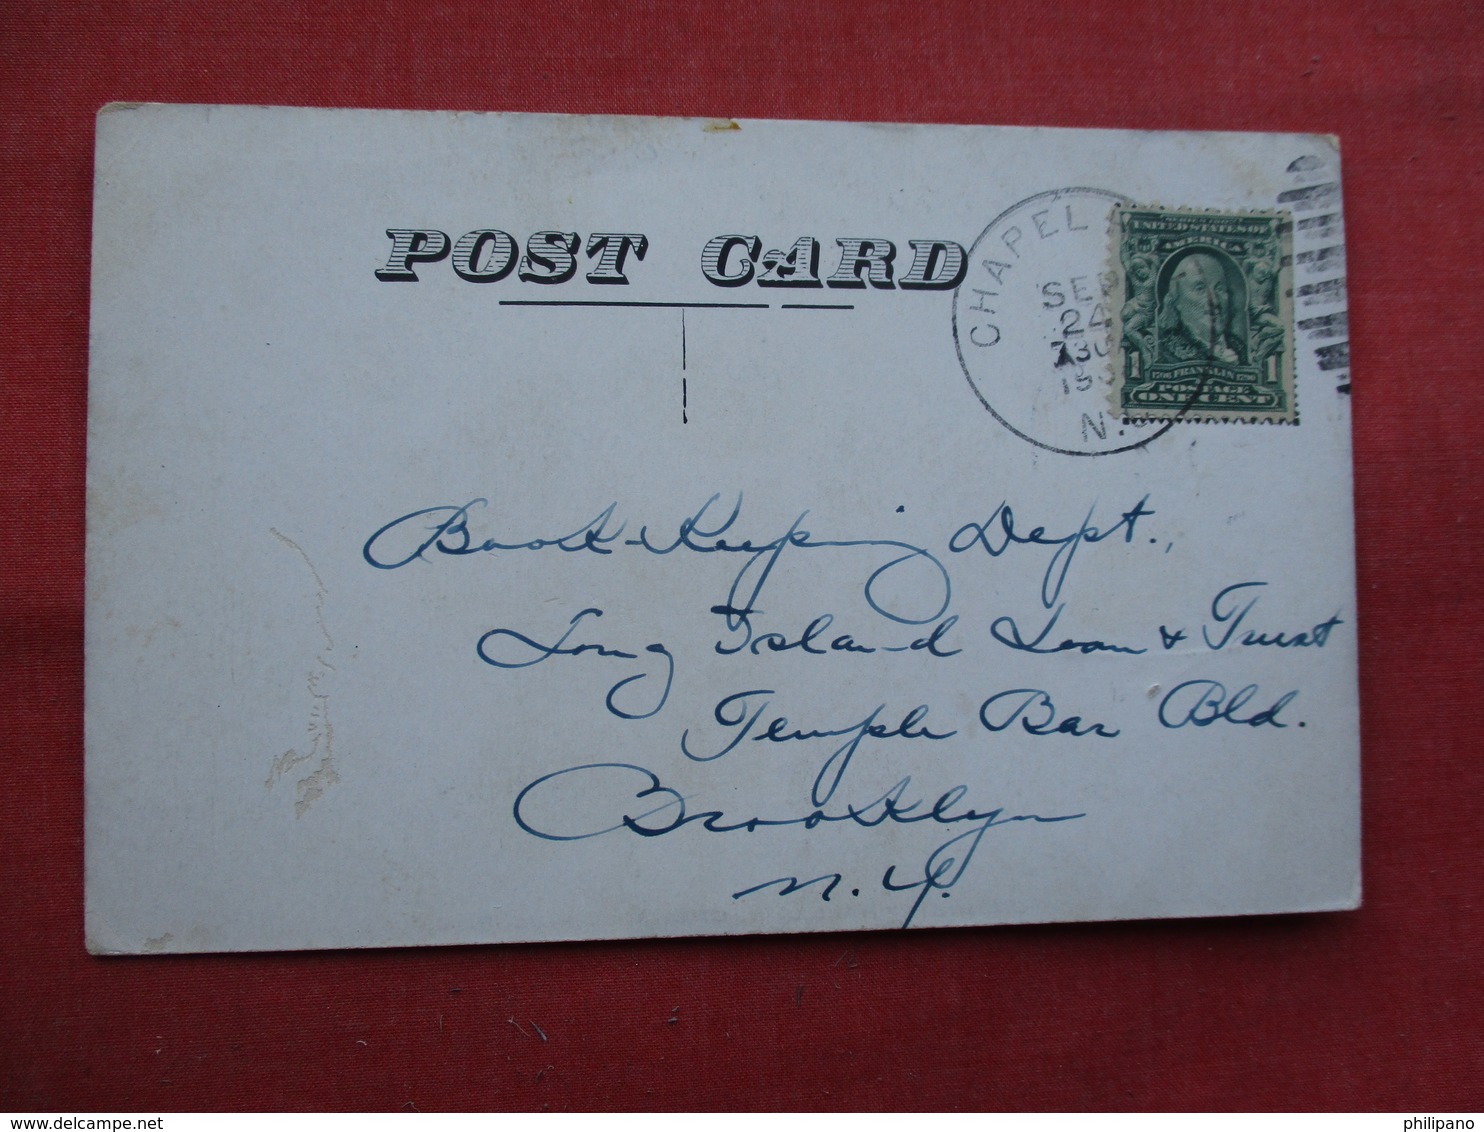 POST CARD
CHAPEL
SEP
24
N.
UNITED STATES OF
AMERICA
1 FRANKLIN 1
POSTAGE
ONE CENT
Book-Keeping Dept.,
Long Island Loan & Trust
Temple Bar Bld.
Brooklyn
N.Y.
delcampe.net
philipano